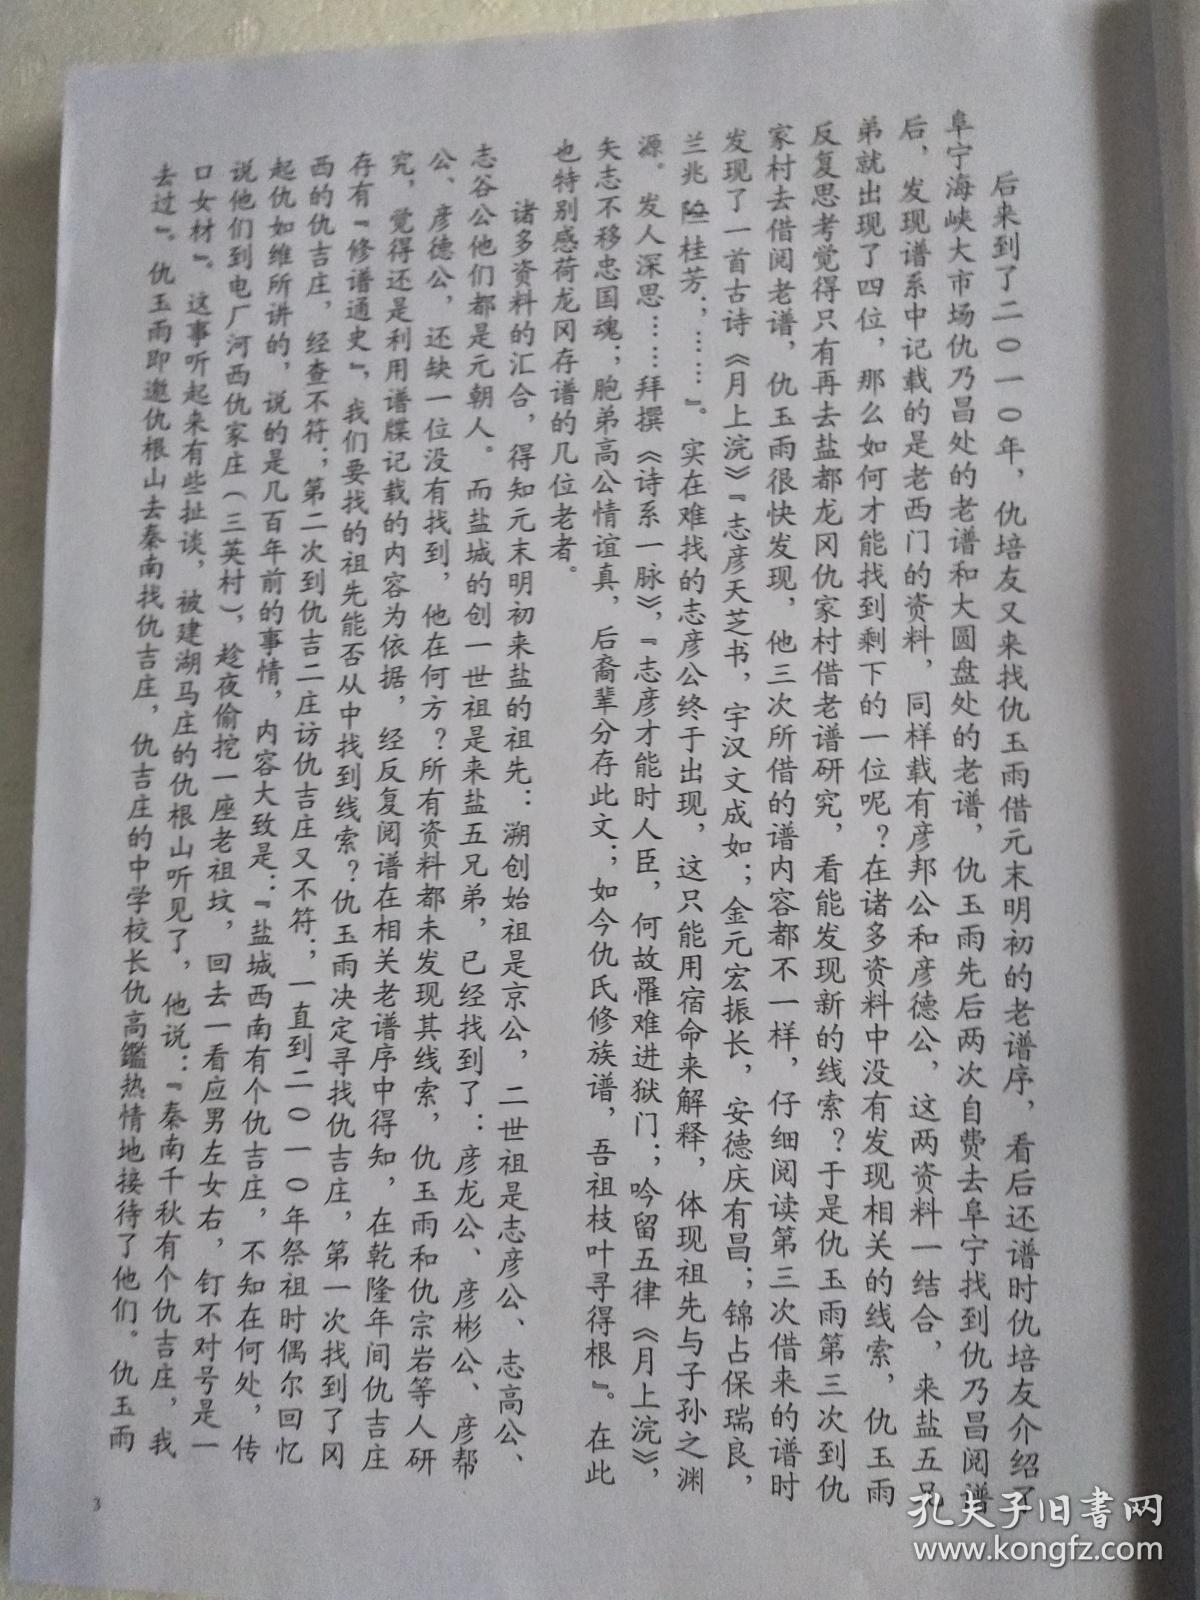 后来到了二〇一〇年，仇培友又来找仇玉雨借元末明初的老谱序，看后还谱时仇培友介绍了
阜宁海峡大市场仇乃昌处的老谱和大圆盘处的老谱，仇玉雨先后两次自费去阜宁找到仇乃昌阅谱
后，发现谱系中记载的是老西门的资料，同样载有彦邦公和彦德公，这两资料一结合，来盐五兄
弟就出现了四位，那么如何才能找到剩下的一位呢？在诸多资料中没有发现相关的线索，仇玉雨
反复思考觉得只有再去盐都龙冈仇家村借老谱研究，看能发现新的线索？于是仇玉雨第三次到仇
家村去借阅老谱，仇玉雨很快发现，他三次所借的谱内容都不一样，仔细阅读第三次借来的谱时
发现了一首古诗《月上浣》『志彦天芝书，宇汉文成如；金元宏振长，安德庆有昌；锦占保瑞良，
兰兆桂芳；……』。实在难找的志彦公终于出现，这只能用宿命来解释，体现祖先与子孙之渊
源。发人深思……拜撰《诗系一脉》，『志彦才能时人臣，何故罹难进狱门；吟留五律《月上浣》，
矢志不移忠国魂；胞弟高公情谊真，后裔辈分存此文；如今仇氏修族谱，吾祖枝叶寻得根』。在此
也特别感荷龙冈存谱的几位老者。
诸多资料的汇合，得知元末明初来盐的祖先：溯创始祖是京公，二世祖是志彦公、志高公、
志谷公他们都是元朝人。而盐城的创一世祖是来盐五兄弟，已经找到了：彦龙公、彦彬公、彦帮
公、彦德公，还缺一位没有找到，他在何方？所有资料都未发现其线索，仇玉雨和仇宗岩等人研
究，觉得还是利用谱牒记载的内容为依据，经反复阅谱在相关老谱序中得知，在乾隆年间仇吉庄
存有『修谱通史』，我们要找的祖先能否从中找到线索？仇玉雨决定寻找仇吉庄，第一次找到了冈
西的仇吉庄，经查不符；第二次到仇吉二庄访仇吉庄又不符；一直到二〇一〇年祭祖时偶尔回忆
起仇如维所讲的，说的是几百年前的事情，内容大致是：『盐城西南有个仇吉庄，不知在何处，传
说他们到电厂河西仇家庄（三英村），趁夜偷挖一座老祖坟，回去一看应男左女右，钉不对号是一
口女材』。这事听起来有些扯谈，被建湖马庄的仇根山听见了，他说：『秦南千秋有个仇吉庄，我
去过』。仇玉雨即邀仇根山去秦南找仇吉庄，仇吉庄的中学校长仇高鑑热情地接待了他们。仇玉雨
3
孔夫子旧书网
www.kongfz.com